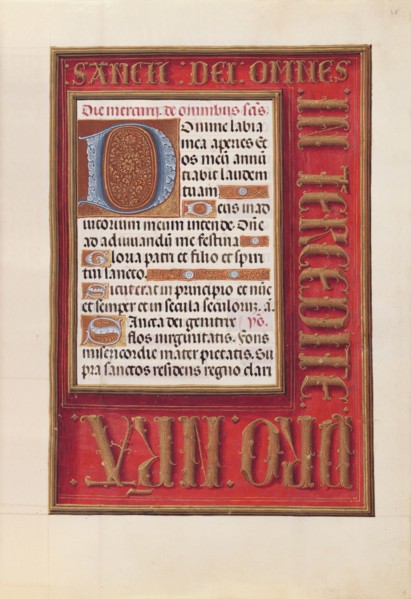 SANCTI DEI OMNES
INTERCEDITE
PRO NRA
Die mercurij de omnibus scīs.
Domine labia
mea aperies Et
os meū annū
tiabit laudem
tuam
Deus in ad
iutorium meum intende. Dñe
ad adiuuandū me festina
Gloria patri et filio et spiri
tui sancto.
Sicut erat in principio et nūc
et semper et in secula seculorū. a.
Sancta dei genitrix yṡ.
flos uirginitatis. Fons
misericordie mater pietatis. Su
pra sanctos residens regno clari